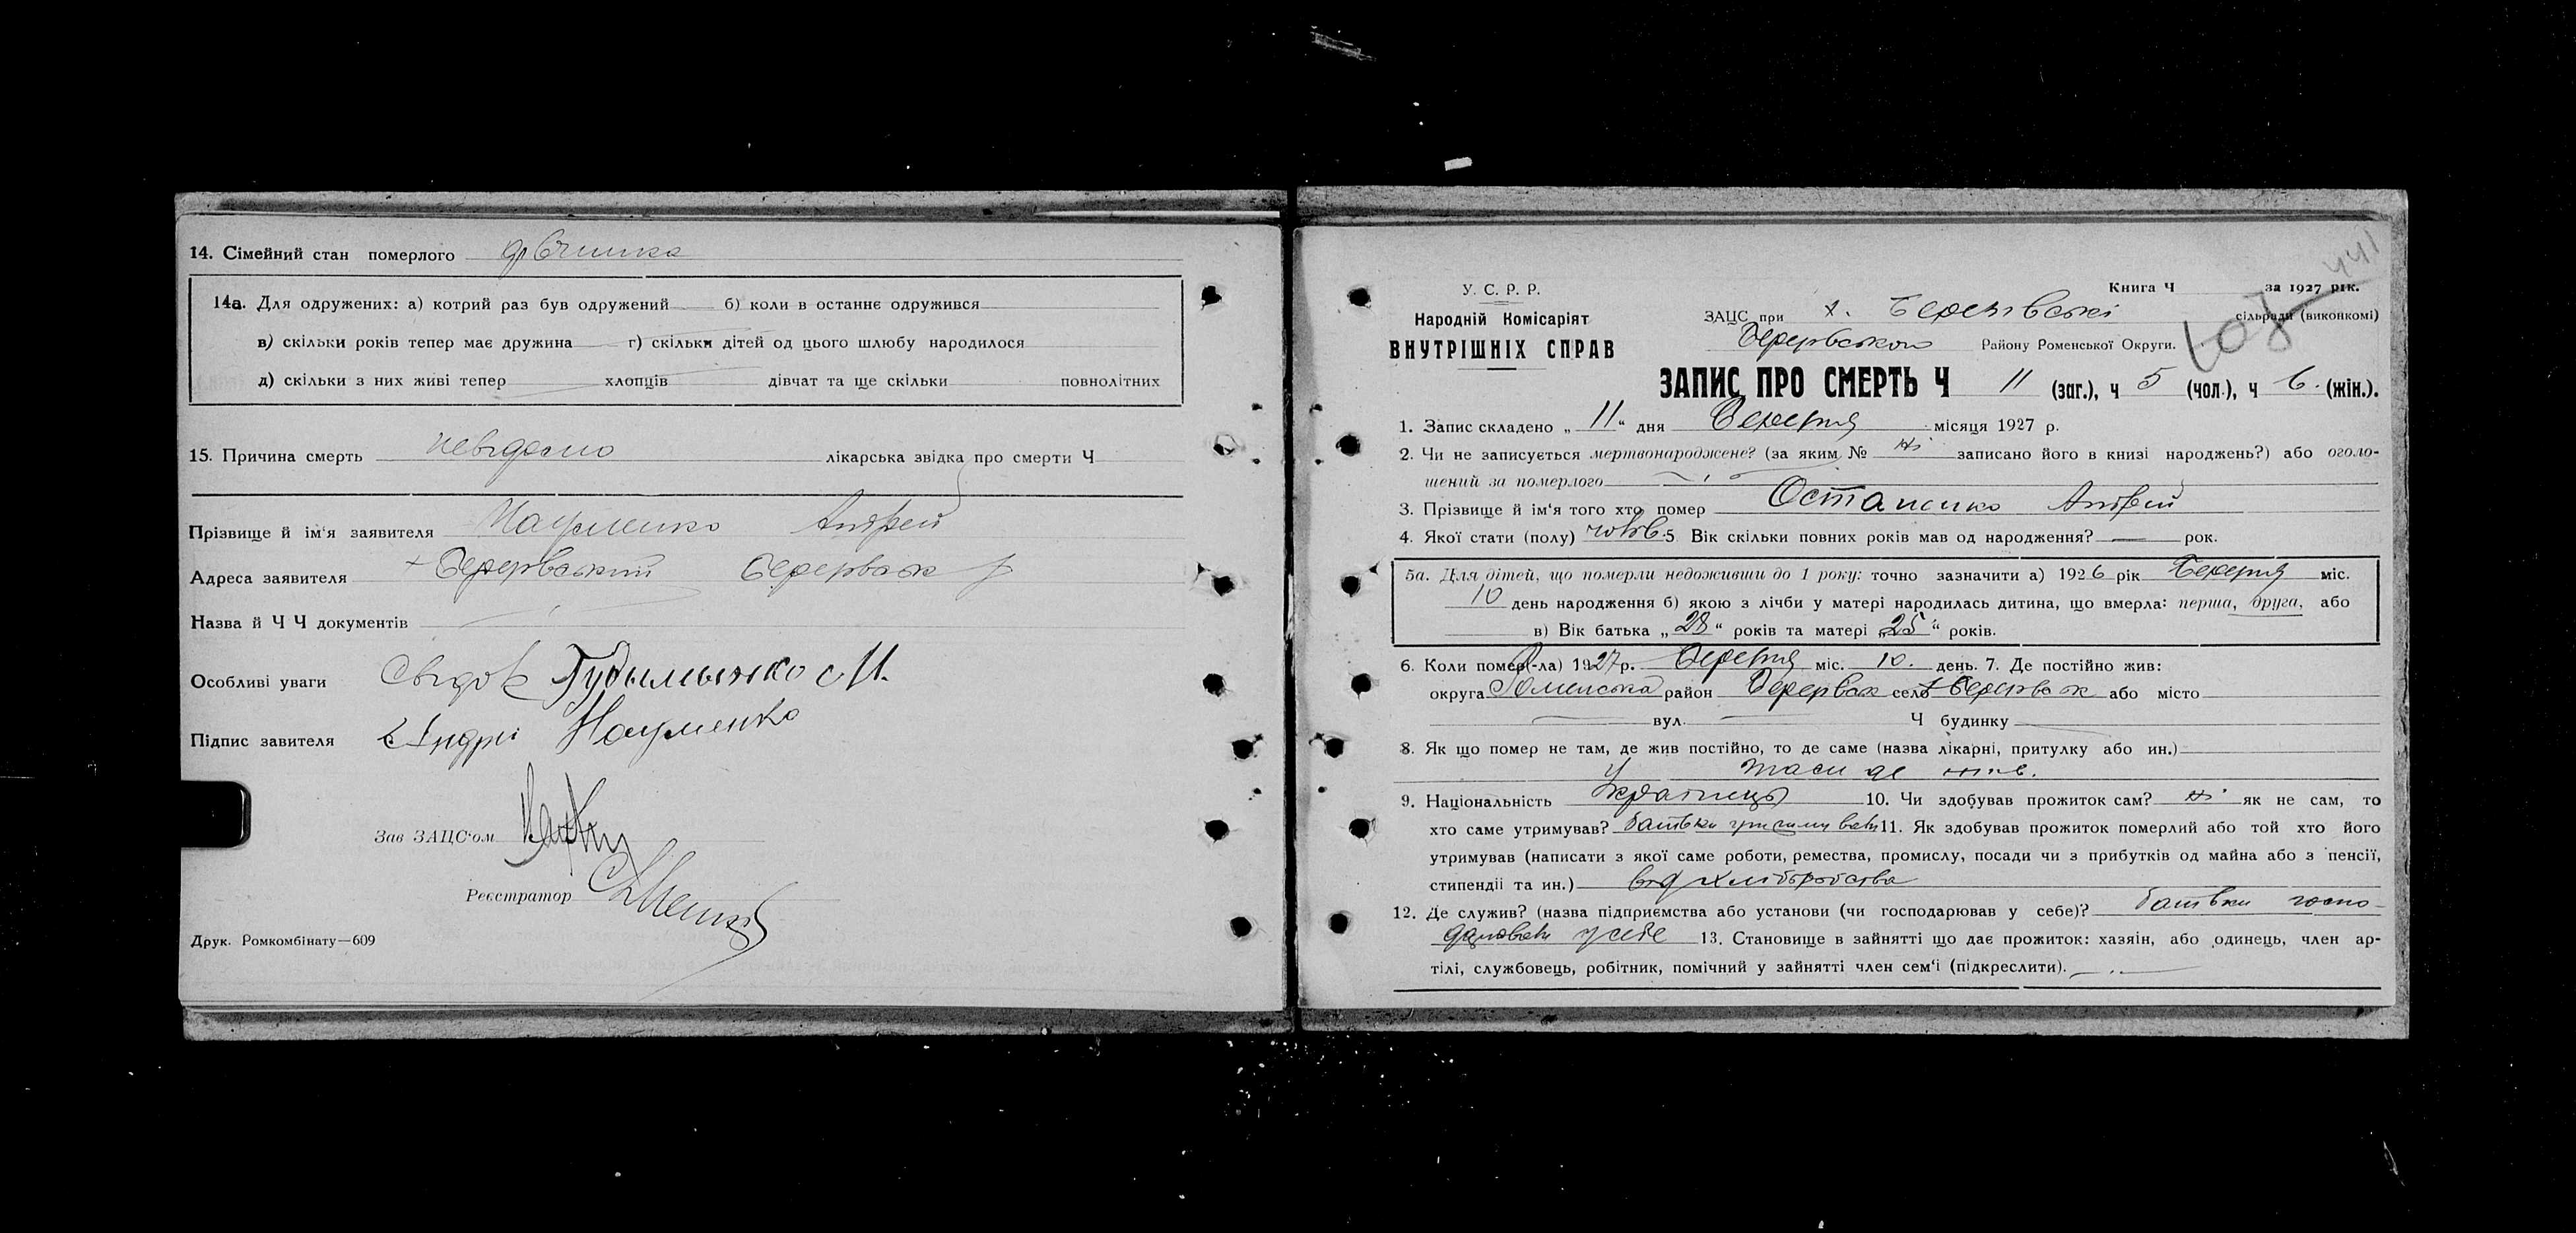 14. Сімейний стан померлого дівчинка
14а. Для одружених: а) котрий раз був одружений б) коли в останнє одружився
в) скільки років тепер має дружина г) скільки дітей од цього шлюбу народилося
д) скільки з них живі тепер хлопців дівчат та ще скільки повнолітних
15. Причина смерть невідомо лікарська звідка про смерти Ч
Прізвище й ім'я заявителя Науменко Андрей
Адреса заявителя
Назва й Ч Ч документів
Особливі уваги Свідок
Підпис завителя Андрі Науменко
Зав ЗАЦС'ом
Реєстратор
Друк. Ромкомбінату—609
441
У. С. Р. Р.
Народній Комісаріят
ВНУТРІШНІХ СПРАВ
Книга Ч за 1927 рік.
ЗАЦС при х. сільради (виконкомі)
Району Роменської Округи.
ЗАПИС ПРО СМЕРТЬ Ч 11 (заг.), ч 5 (чол.), ч 6. (жін.).
1. Запис складено „ 11 “ дня Березня місяця 1927 р.
2. Чи не записується мертвонароджене? (за яким № ні записано його в книзі народжень?) або оголо-
шений за померлого
3. Прізвище й ім'я того хто помер Остапенко Андрей
4. Якої стати (полу) чолов. 5 Вік скільки повних років мав од народження? — рок.
5а. Для дітей, що померли недоживши до 1 року: точно зазначити а) 1926 рік Березня міс.
10 день народження б) якою з лічби у матері народилась дитина, що вмерла: перша, друга, або
в) Вік батька „ 28 “ років та матері „ 25 “ років.
6. Коли помер(-ла) 1927 р. Березня міс. 10. день. 7. Де постійно жив:
округа Роменська район село або місто
вул. Ч будинку
8. Як що помер не там, де жив постійно, то де саме (назва лікарні, притулку або ин.)
таси де жив.
9. Національність Українець 10. Чи здобував прожиток сам? ні як не сам, то
хто саме утримував? батьки 11. Як здобував прожиток померлий або той хто його
утримував (написати з якої саме роботи, ремества, промислу, посади чи з прибутків од майна або з пенсії,
стипендії та ин.) від хліборобства
12. Де служив? (назва підприємства або установи (чи господарював у себе)? батьки госпо-
дарювати у себе 13. Становище в зайнятті що дає прожиток: хазяін, або одинець, член ар-
тілі, службовець, робітник, помічний у зайнятті член сем'і (підкреслити).